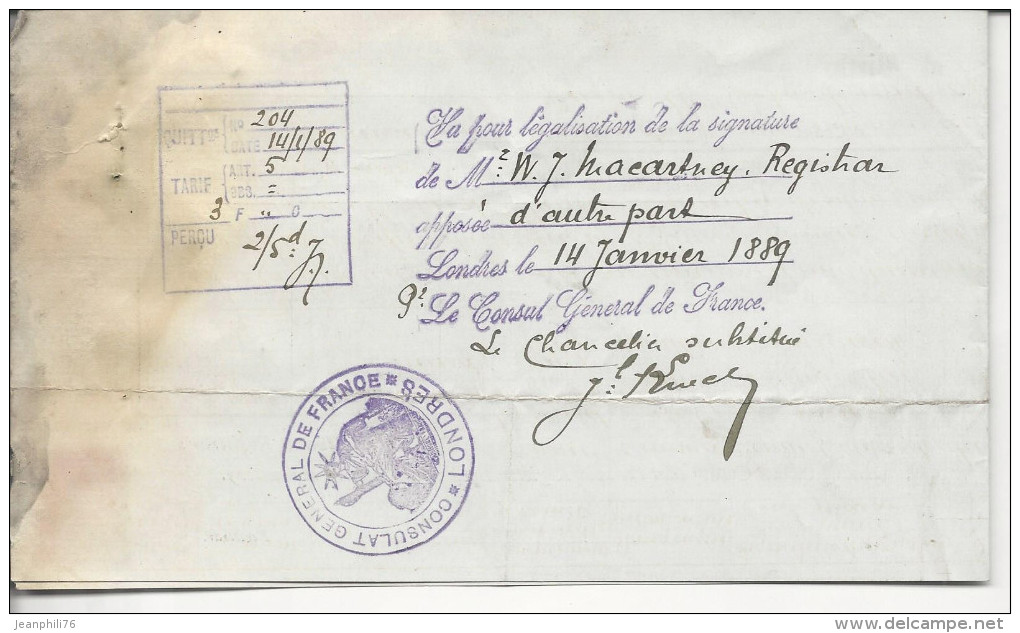 QUITTce { No 204
DATE 14/1/89
TARIF { ART. 5
OBS. =
3 F " C
PERÇU
2/5d
Vu pour légalisation de la signature
de Mr W. J. Macartney, Registrar
apposée d'autre part
Londres le 14 Janvier 1889
Pr Le Consul Général de France.
Le Chancelier substitué
CONSULAT GENERAL DE FRANCE * LONDRES *
jeanphili76
www.delcampe.net